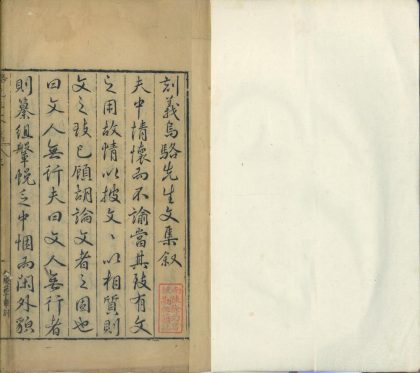 刻義烏駱先生文集叙
夫中情懷而不諭當其陂有文
之用故情以披文〻以相質則
文之跂已顧胡論文者之固也
曰文人無行夫曰文人無行者
則纂組鞶帨之中悃而閑外貌